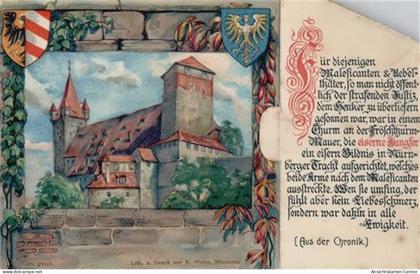 Für diejenigen
Maleficanten & Uebel-
thäter, so man nicht öffent-
lich der strafenden Justiz,
dem Henker zu überliefern
gesonnen war, war in einem
Thurm an der Fröschthurm
Mauer, die eiserne Jungfer
ein eisern Bildnis in Nürn-
berger Tracht aufgerichtet, welches
beide Arme nach dem Maleficanten
ausstreckte. Wen sie umfing, der
fühlt aber kein Liebesschmerz,
sondern war dahin in alle
Ewigkeit.
(Aus der Chronik.)
Lith. u. Druck von R. Nürnberg.
Ansichtskarten Center